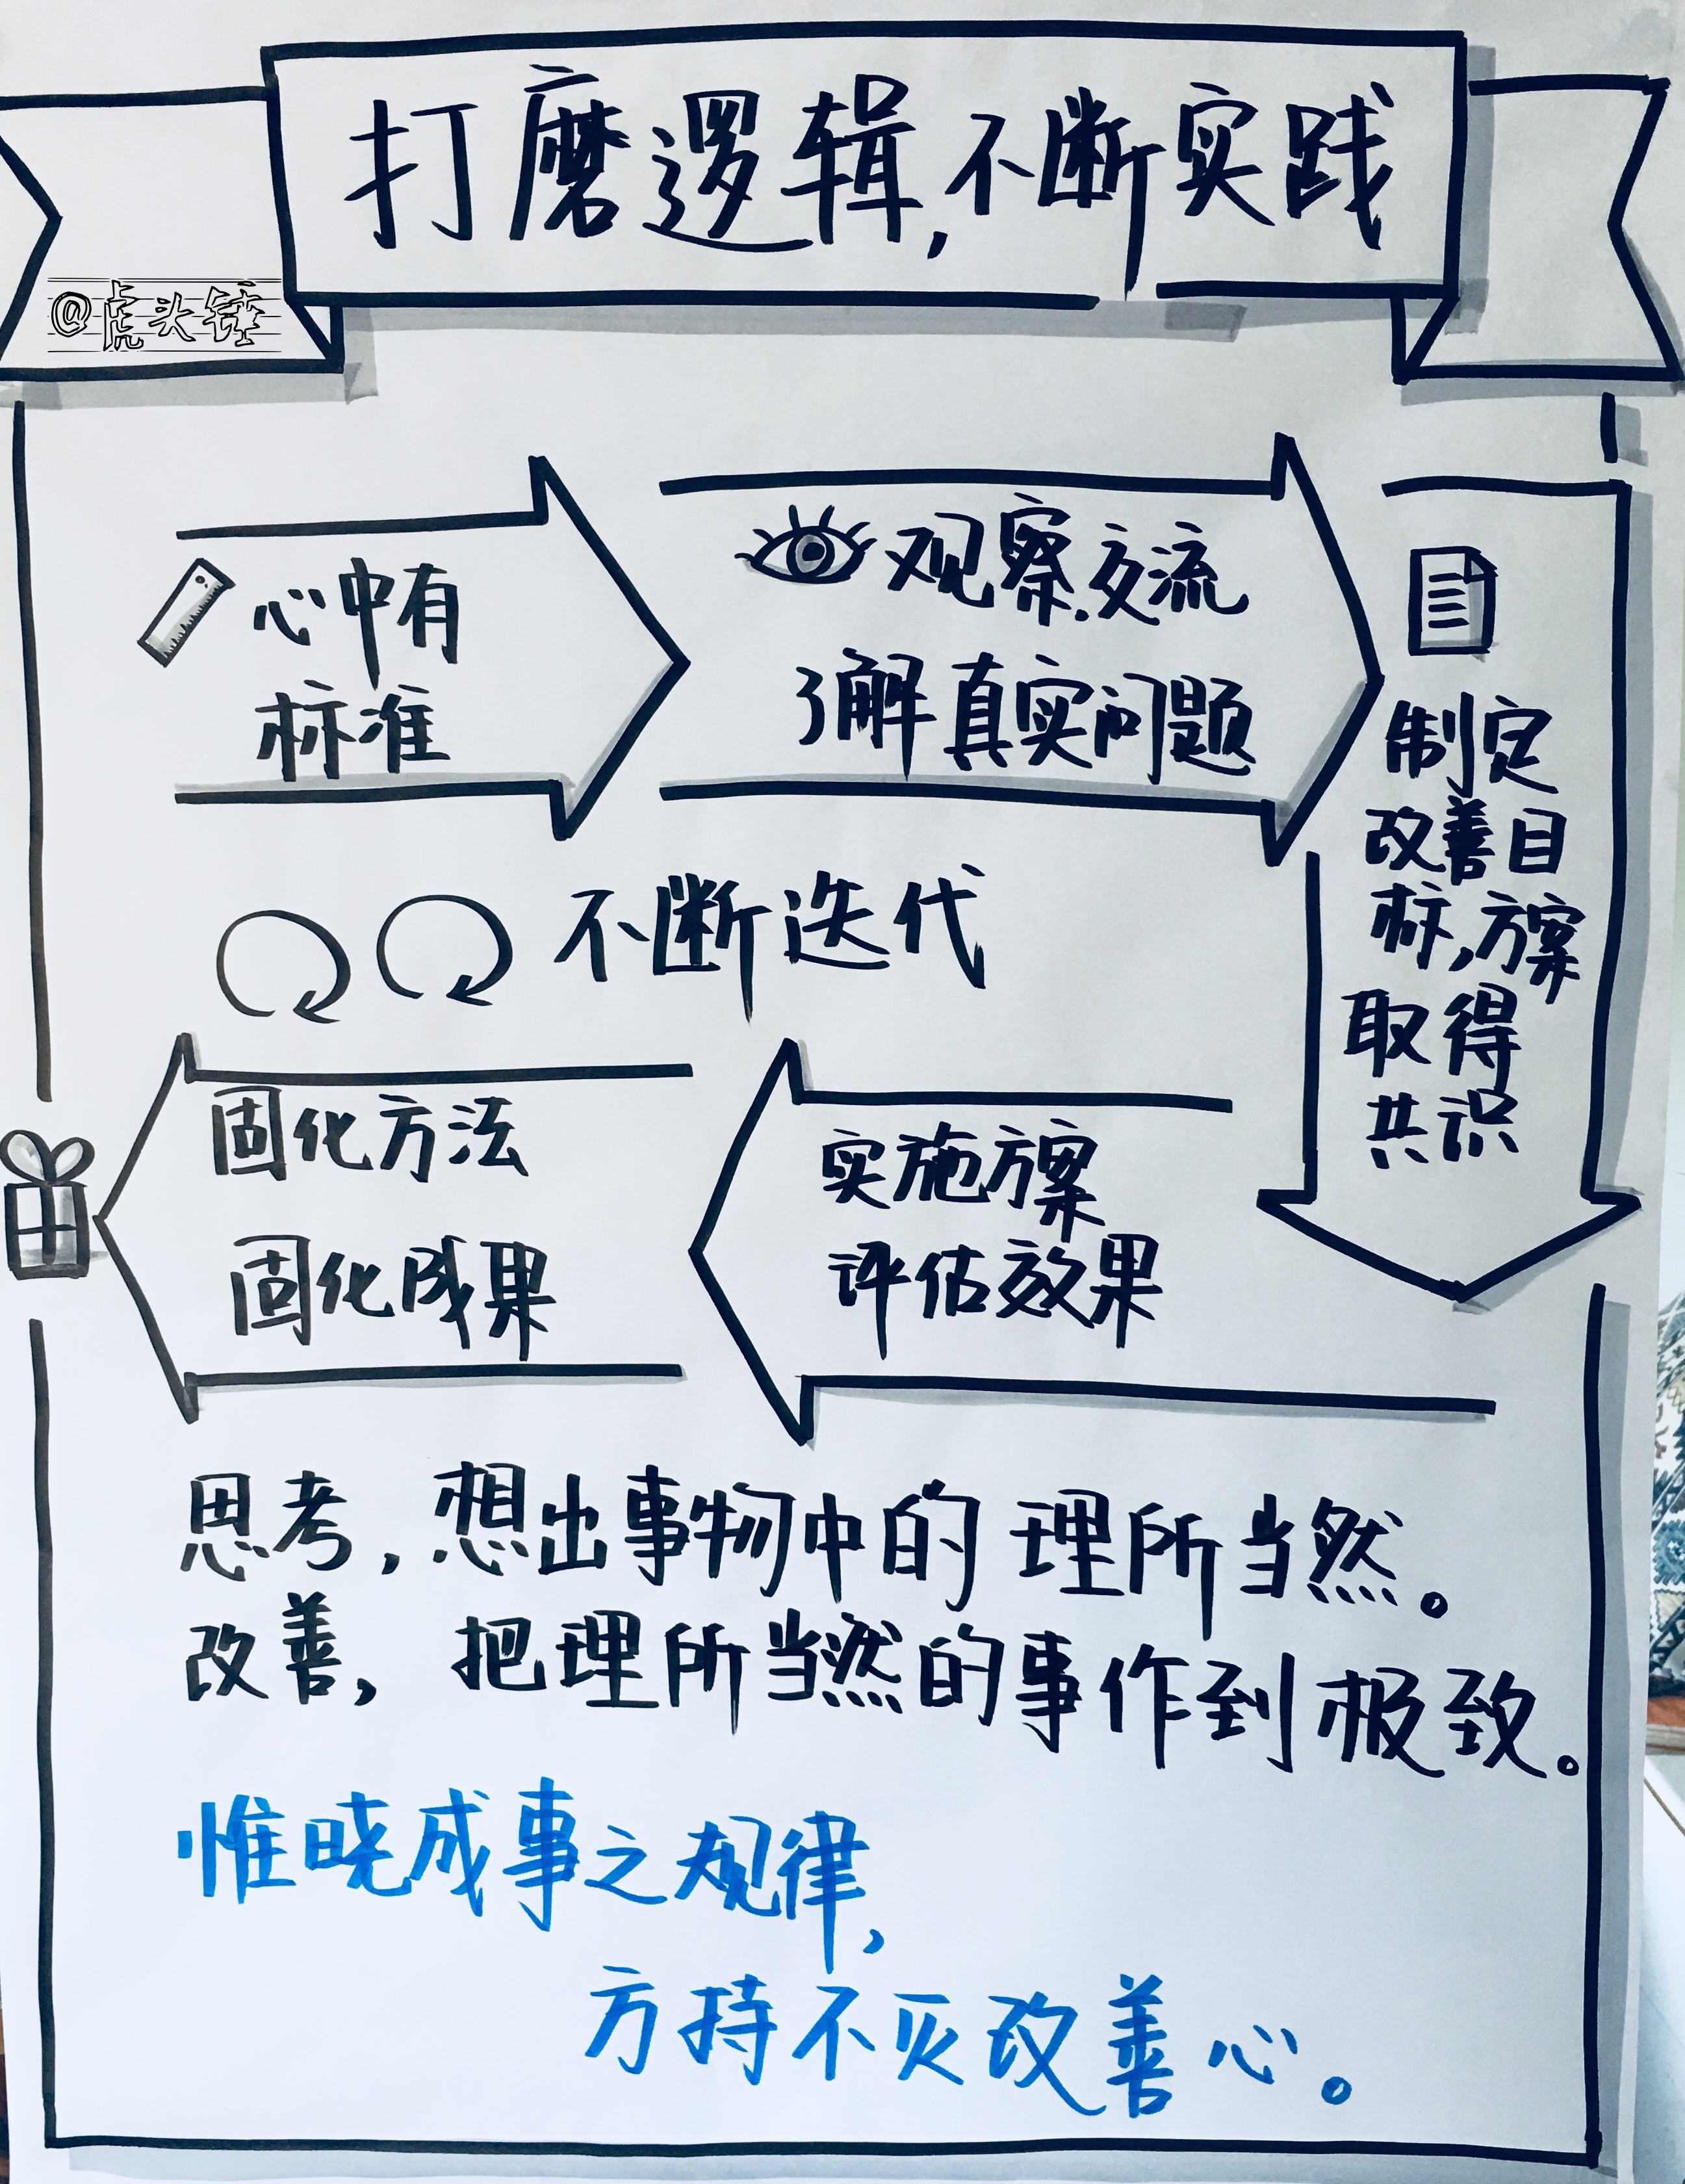 打磨逻辑,不断实践
@虎头锤
心中有
标准
观察.交流
了解真实问题
制定
改善目
标,方案
取得
共识
不断迭代
实施方案
评估效果
固化方法
固化成果
思考,想出事物中的理所当然。
改善,把理所当然的事作到极致。
惟晓成事之规律,
方持不灭改善心。